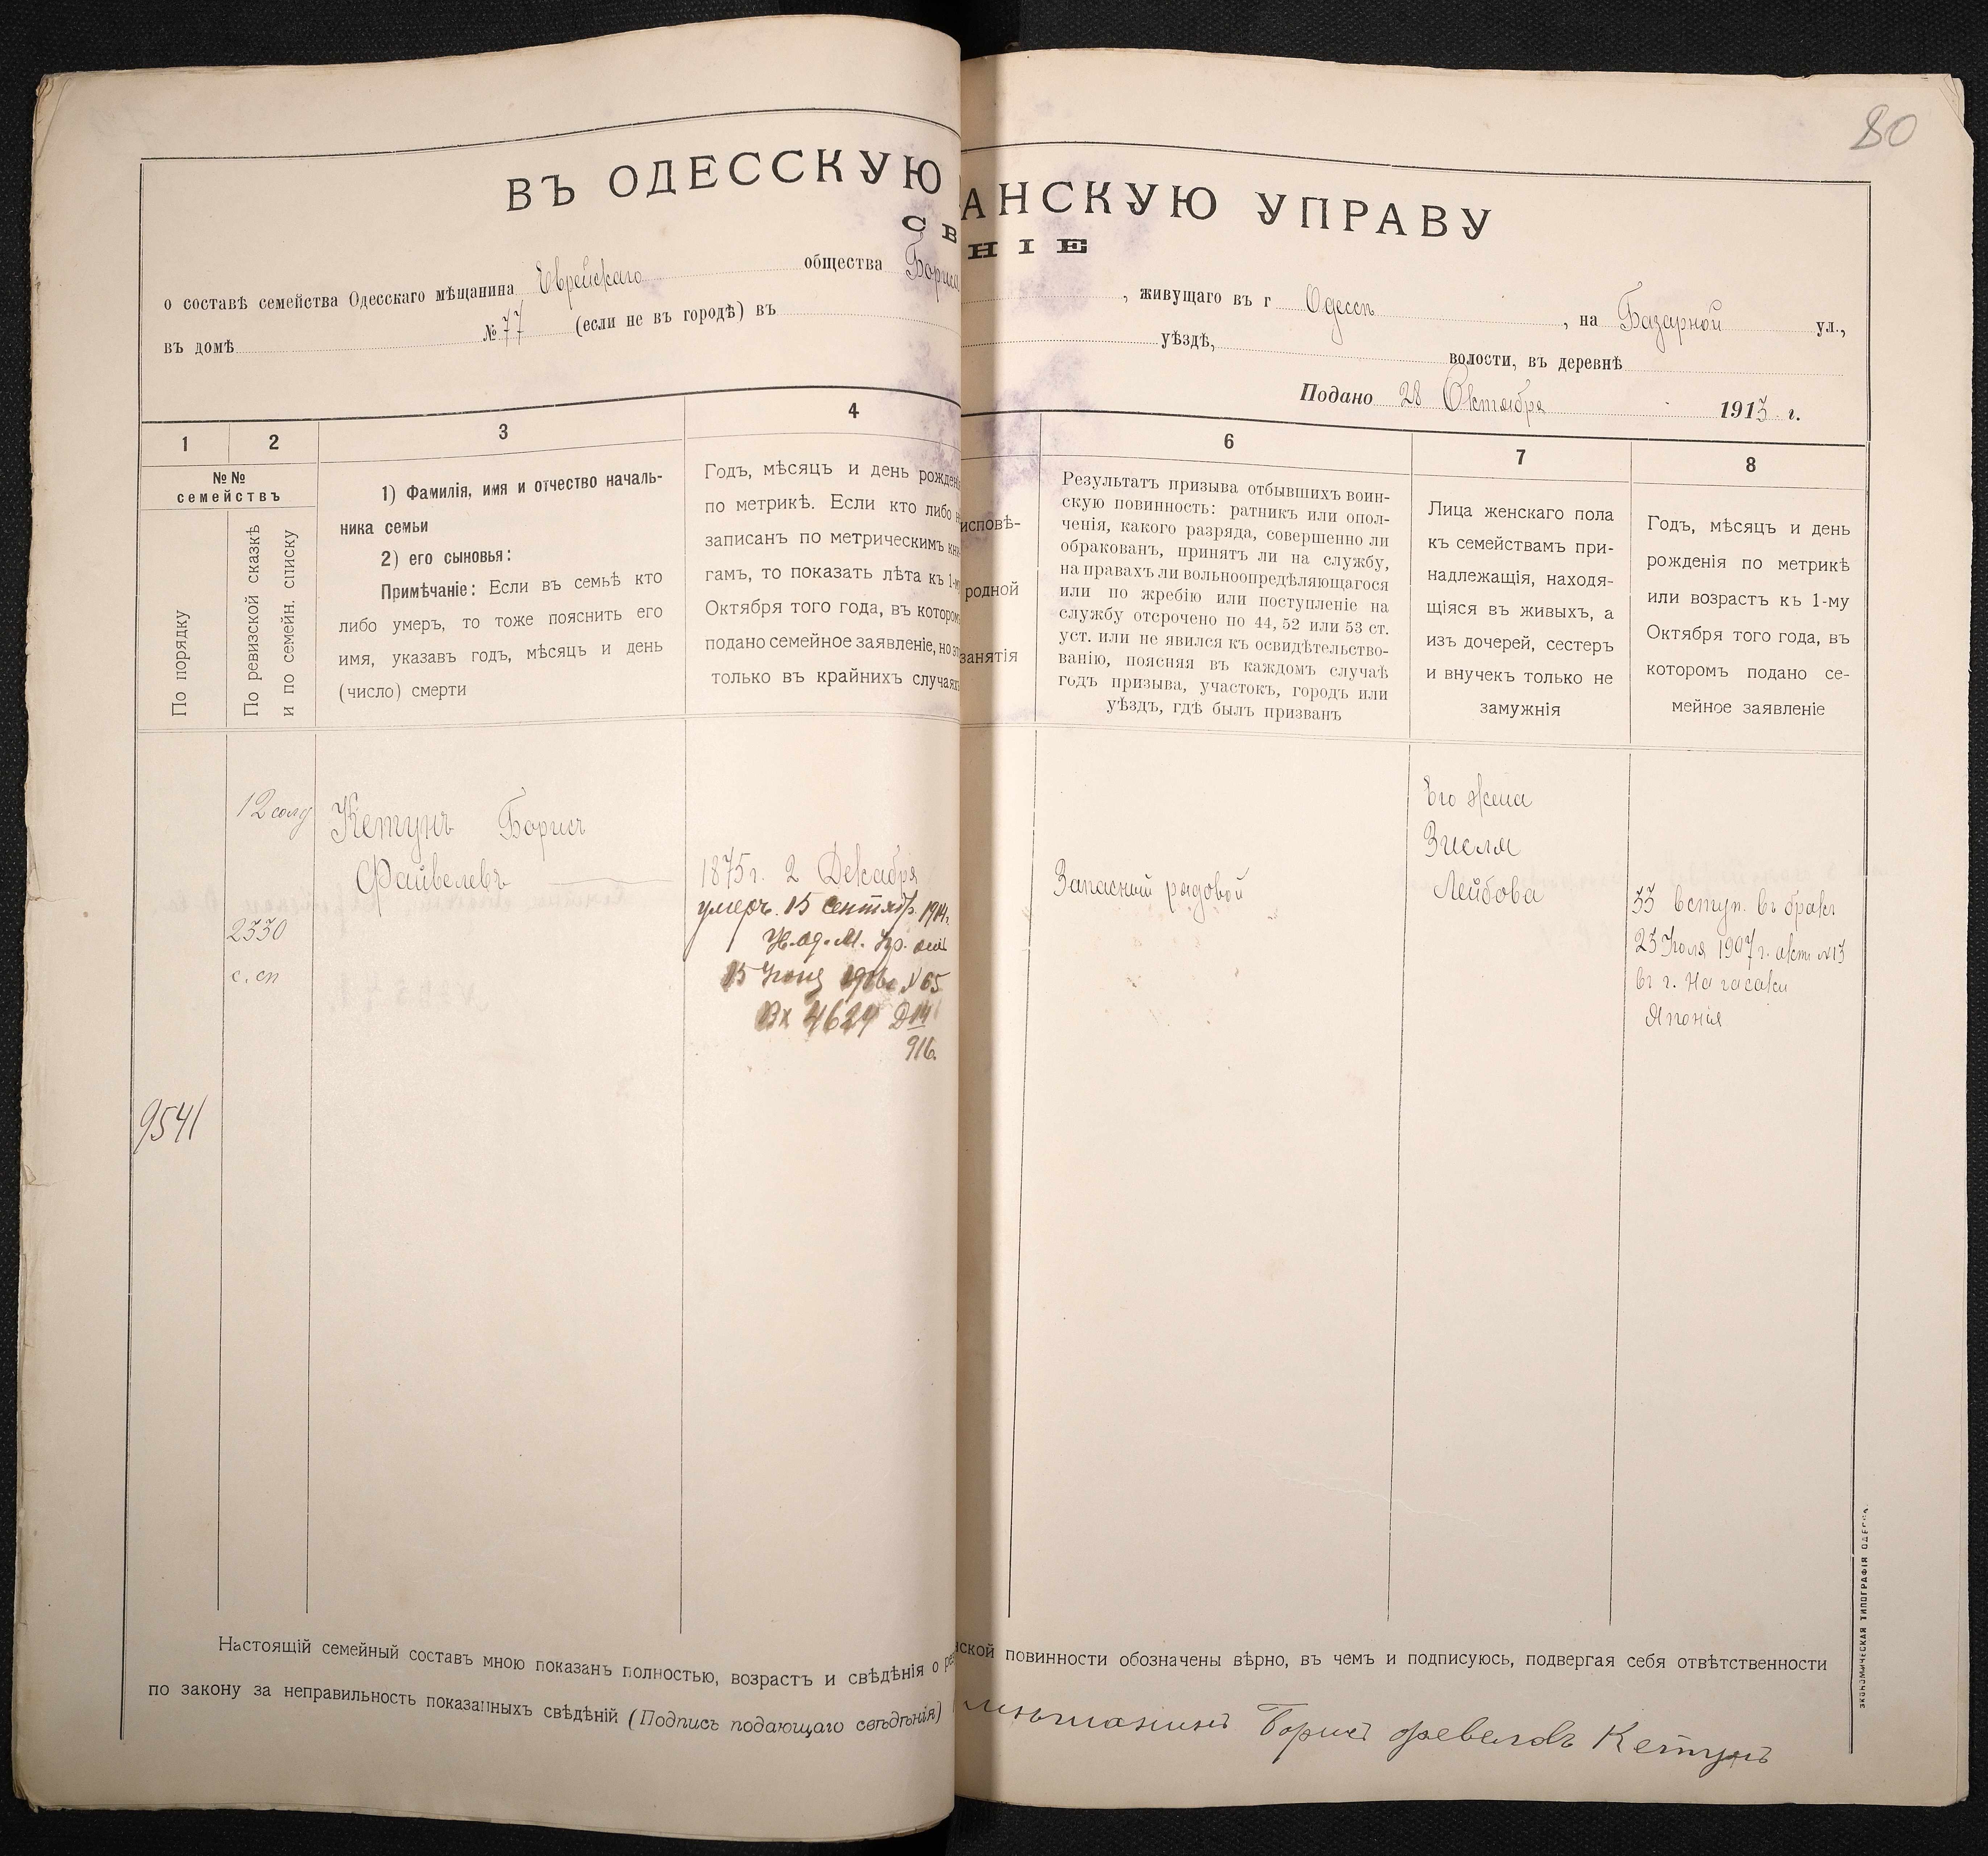 80
ВЪ ОДЕССКУЮ
АНСКУЮ УПРАВУ
СВ
НІЕ
о составѣ семейства Одесскаго мѣщанина Еврейскаго общества Бориса
, живущаго въ г Одессѣ , на Базарной ул.,
въ домѣ № 77 (если не въ городѣ) въ
уѣздѣ, волости, въ деревнѣ
Подано 28 Октября 1913 г.
1
2
3
4
6
7
8
№№
семействъ
По порядку
По ревизской сказкѣ
и по семейн. списку
1) Фамилія, имя и отчество началь-
ника семьи
2) его сыновья:
Примѣчаніе: Если въ семьѣ кто
либо умеръ, то тоже пояснить его
имя, указавъ годъ, мѣсяцъ и день
(число) смерти
Годъ, мѣсяцъ и день рожден
по метрикѣ. Если кто либо
записанъ по метрическимъ кн
гамъ, то показать лѣта къ 1-м
Октября того года, въ котором
подано семейное заявленіе, но э
только въ крайнихъ случаях
исповѣ-
родной
занятія
Результатъ призыва отбывшихъ воин-
скую повинность: ратникъ или опол-
ченія, какого разряда, совершенно ли
обракованъ, принятъ ли на службу,
на правахъ ли вольноопредѣляющагося
или по жребію или поступленіе на
службу отсрочено по 44, 52 или 53 ст.
уст. или не явился къ освидѣтельство-
ванію, поясняя въ каждомъ случаѣ
годъ призыва, участокъ, городъ или
уѣздъ, гдѣ былъ призванъ
Лица женскаго пола
къ семействамъ при-
надлежащія, находя-
щіяся въ живыхъ, а
изъ дочерей, сестеръ
и внучекъ только не
замужнія
Годъ, мѣсяцъ и день
рожденія по метрикѣ
или возрастъ къ 1-му
Октября того года, въ
которомъ подано се-
мейное заявленіе
12
2330
с. сп
9541
Кетунъ Борисъ
Файвелевъ
1875 г. 2 Декабря
умеръ. 15 сентяб. 1914
15 Іюня 1916 №65
Вх 4624 Д 14
916.
Запасный рядовой
Его жена
Зисля
Лейбова
33 вступ. въ бракъ
23 Іюля 1907 г. акт. №13
въ г. Нагасаки
Японія
Настоящій семейный составъ мною показанъ полностью, возрастъ и свѣдѣнія о ре
ской повинности обозначены вѣрно, въ чемъ и подписуюсь, подвергая себя отвѣтственности
по закону за неправильность показанныхъ свѣдѣній (Подпись подающаго свѣдѣнія)
Борисъ Февелевъ Кетунъ
ЭКОНОМИЧЕСКАЯ ТИПОГРАФІЯ ОДЕССА.